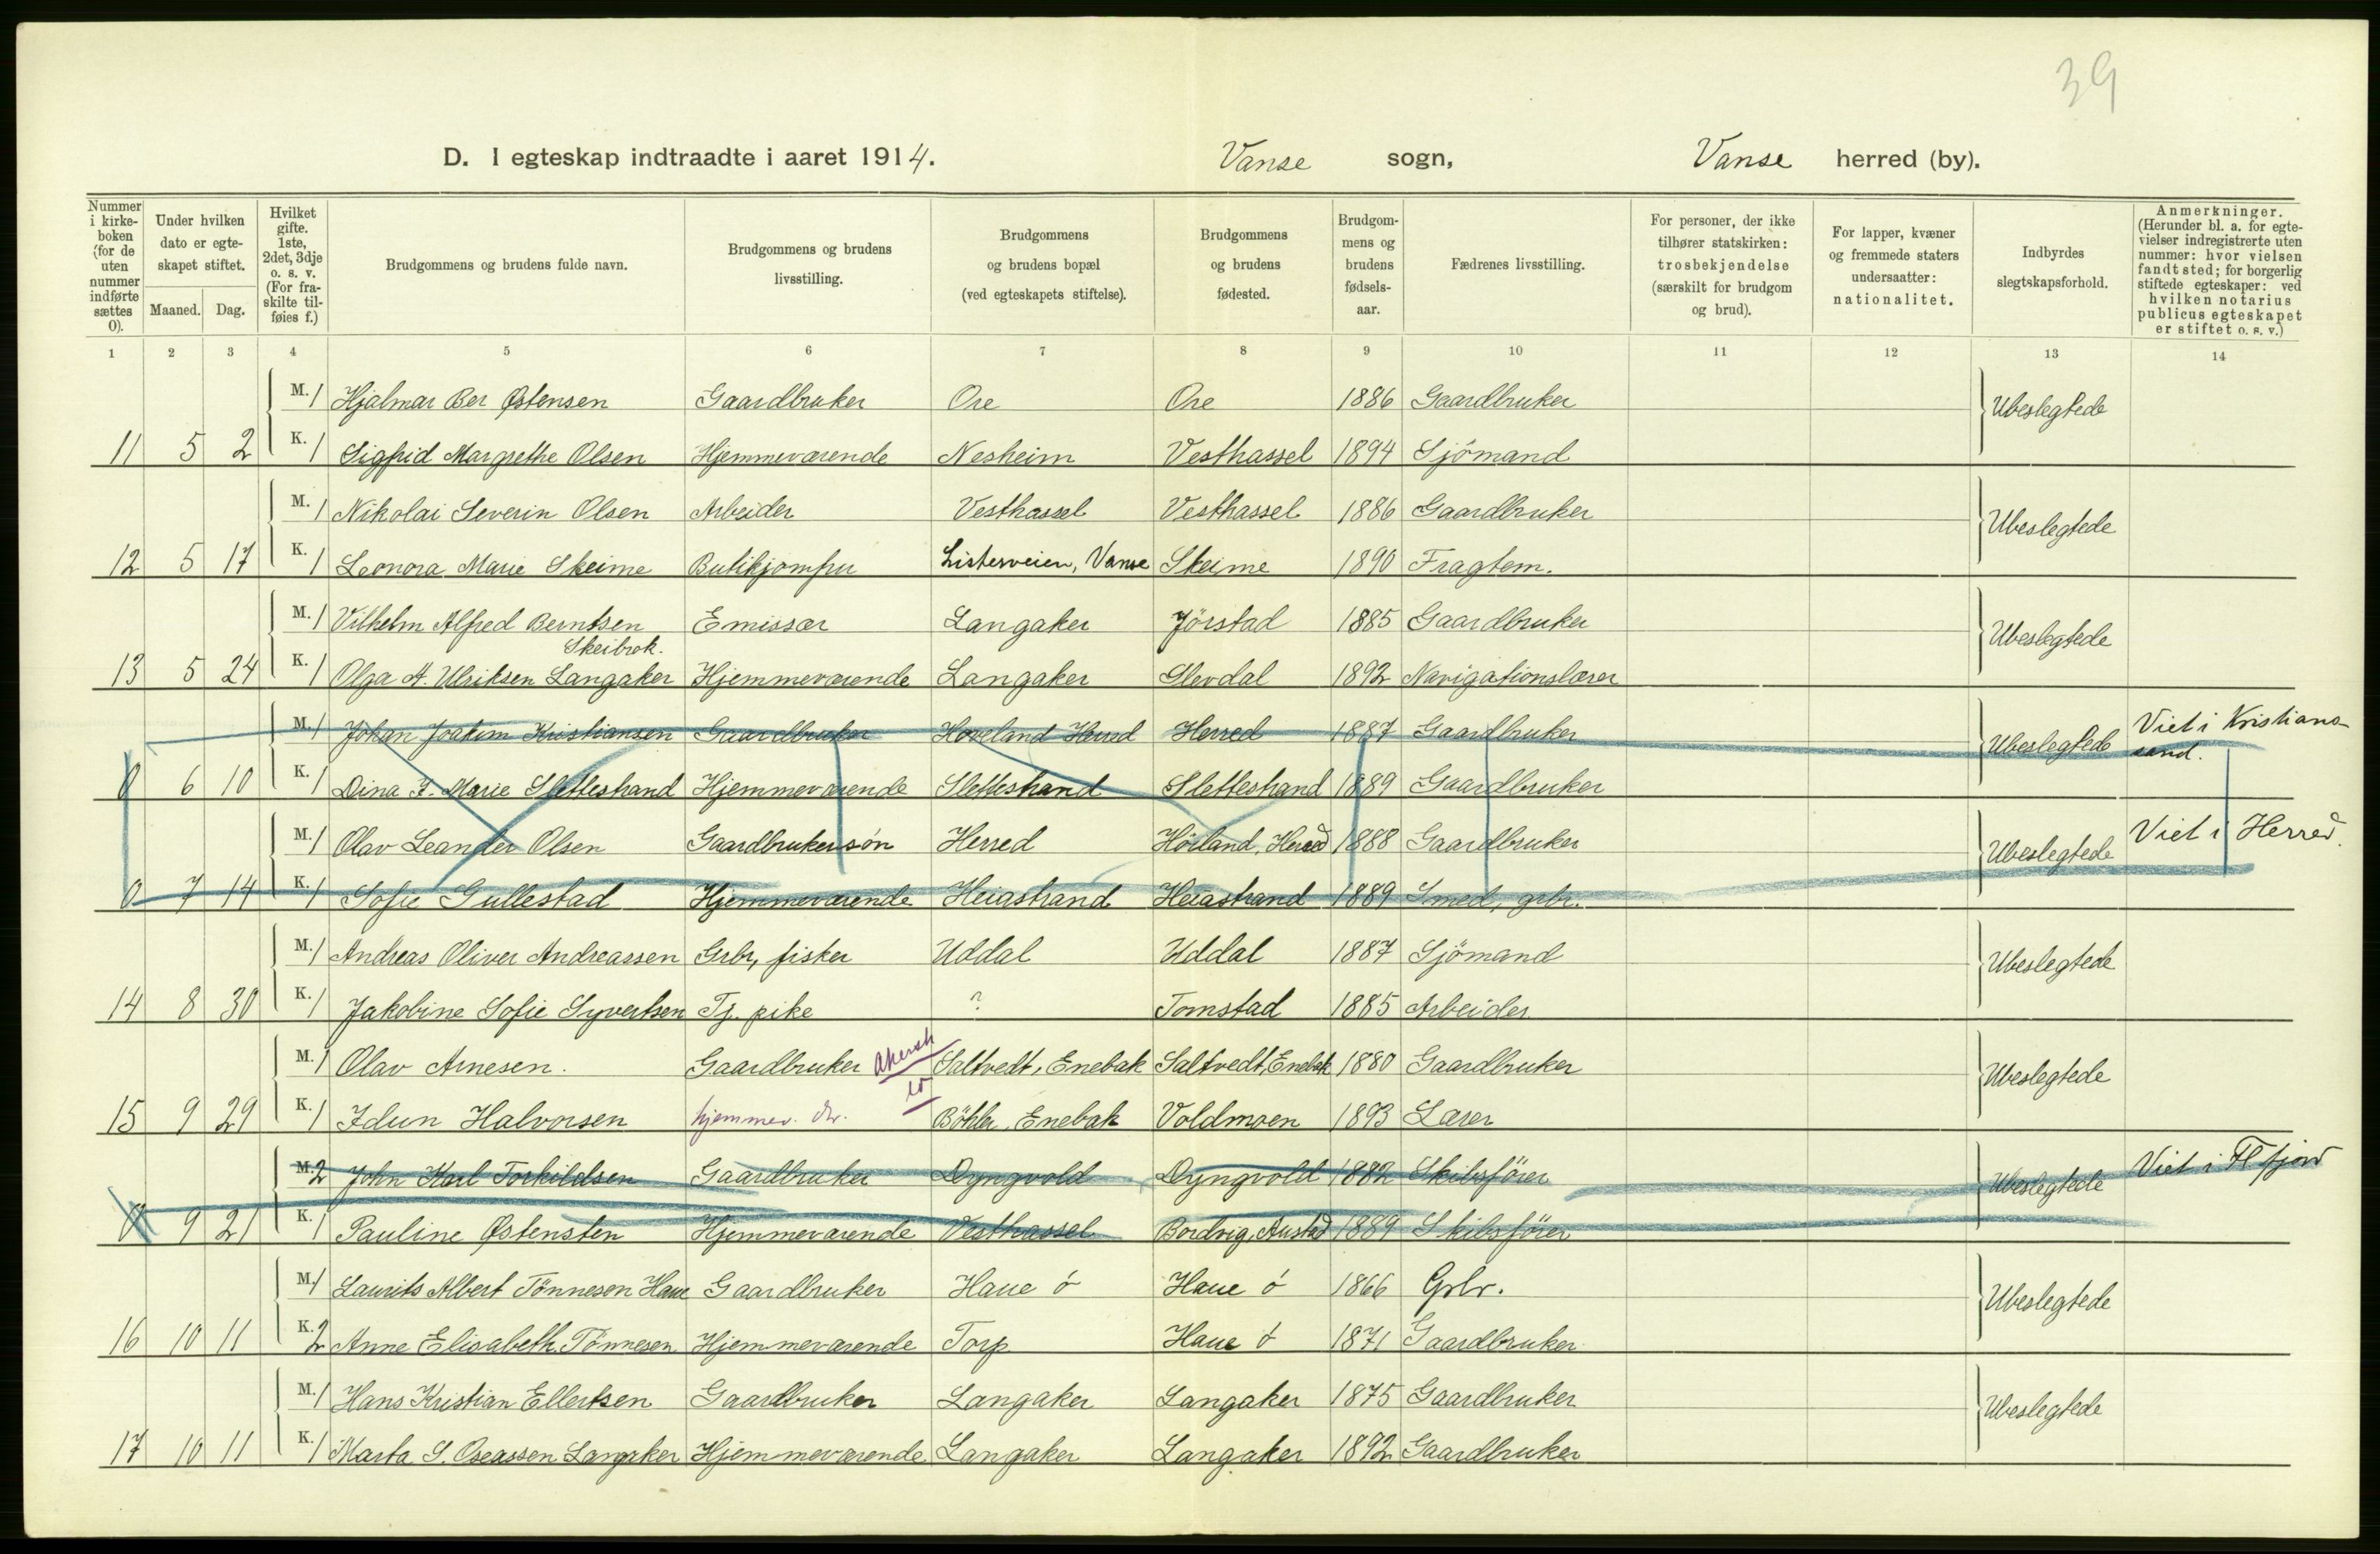 39
D. I egteskap indtraadte i aaret 1914. Vanse sogn, Vanse herred (by).
Nummer i kirke- boken (for de uten nummer indførte sættes 0).
Under hvilken dato er egte- skapet stiftet.
Maaned. Dag.
Hvilket gifte. 1ste, 2det, 3dje o. s. v. (For fra- skilte til- føies f.)
Brudgommens og brudens fulde navn.
Brudgommens og brudens livsstilling.
Brudgommens og brudens bopæl (ved egteskapets stiftelse).
Brudgommens og brudens fødested.
Brudgom- mens og brudens fødsels- aar.
Fædrenes livsstilling.
For personer, der ikke tilhører statskirken: trosbekjendelse (særskilt for brudgom og brud).
For lapper, kvæner og fremmede staters undersaatter: nationalitet.
Indbyrdes slegtskapsforhold.
Anmerkninger. (Herunder bl. a. for egte- vielser indregistrerte uten nummer: hvor vielsen fandt sted; for borgerlig stiftede egteskaper: ved hvilken notarius publicus egteskapet er stiftet o. s. v.)
1 2 3 4 5 6 7 8 9 10 11 12 13 14
M. 1 Hjalmar Ber Østensen Gaardbruker Ore Ore 1886 Gaardbruker Ubeslegtede
11 5 2 K. 1 Sigfrid Margrethe Olsen Hjemmeværende Nesheim Vesthassel 1894 Sjömand
M. 1 Nikolai Severin Olsen Arbeider Vesthassel Vesthassel 1886 Gaardbruker Ubeslegtede
12 5 17 K. 1 Leonora Marie Skeime Butikjomfru Listerveien, Vanse Skeime 1890 Fragtem.
M. 1 Vilhelm Alfred Berntsen Emissær Langaker Jörstad 1885 Gaardbruker Ubeslegtede
Skeibrok.
13 5 24 K. 1 Olga A. Ulriksen Langaker Hjemmeværende Langaker Slevdal 1892 Navigationslærer
M. 1 Johan Joakim Kristiansen Gaardbruker Hoveland Herred Herred 1887 Gaardbruker Ubeslegtede Viet i Kristians- sand.
0 6 10 K. 1 Dina F. Marie Sletteshand Hjemmeværende Sletteshand Sletteshand 1889 Gaardbruker
M. 1 Olav Leander Olsen Gaardbrukersön Herred Höiland, Herred 1888 Gaardbruker Ubeslegtede Viet i Herred.
0 7 14 K. 1 Sofie Gullestad Hjemmeværende Heiastrand Heiastrand 1889 Smed, grbr.
M. 1 Andreas Oliver Andreassen Grbr, fisker Uddal Uddal 1887 Sjömand Ubeslegtede
14 8 30 K. 1 Jakobine Sofie Syvertsen Tj. pike ? Tomstad 1885 Arbeider
M. 1 Olav Arnesen. Gaardbruker Akersh Saltvedt, Enebak Saltvedt, Enebak 1880 Gaardbruker Ubeslegtede
15 9 29 K. 1 Idun Halvorsen hjemmev. dtr. Böhler, Enebak Voldmoen 1893 Lærer
M. 2 John Karl Torkildsen Gaardbruker Dyngvold Dyngvold 1882 Skibsförer Ubeslegtede Viet i Fl fjord
0 9 21 K. 1 Pauline Østensten Hjemmeværende Vesthassel Bordvig, Austad 1889 Skibsförer
M. 1 Laurits Albert Tönnesen Haue Gaardbruker Haue ö Haue ö 1866 Grbr. Ubeslegtede
16 10 11 K. 2 Anne Elisabeth Tönnesen Hjemmeværende Torp Haue ö 1871 Gaardbruker
M. 1 Hans Kristian Ellertsen Gaardbruker Langaker Langaker 1875 Gaardbruker Ubeslegtede
17 10 11 K. 1 Marta S. Oseassen Langaker Hjemmeværende Langaker Langaker 1892 Gaardbruker